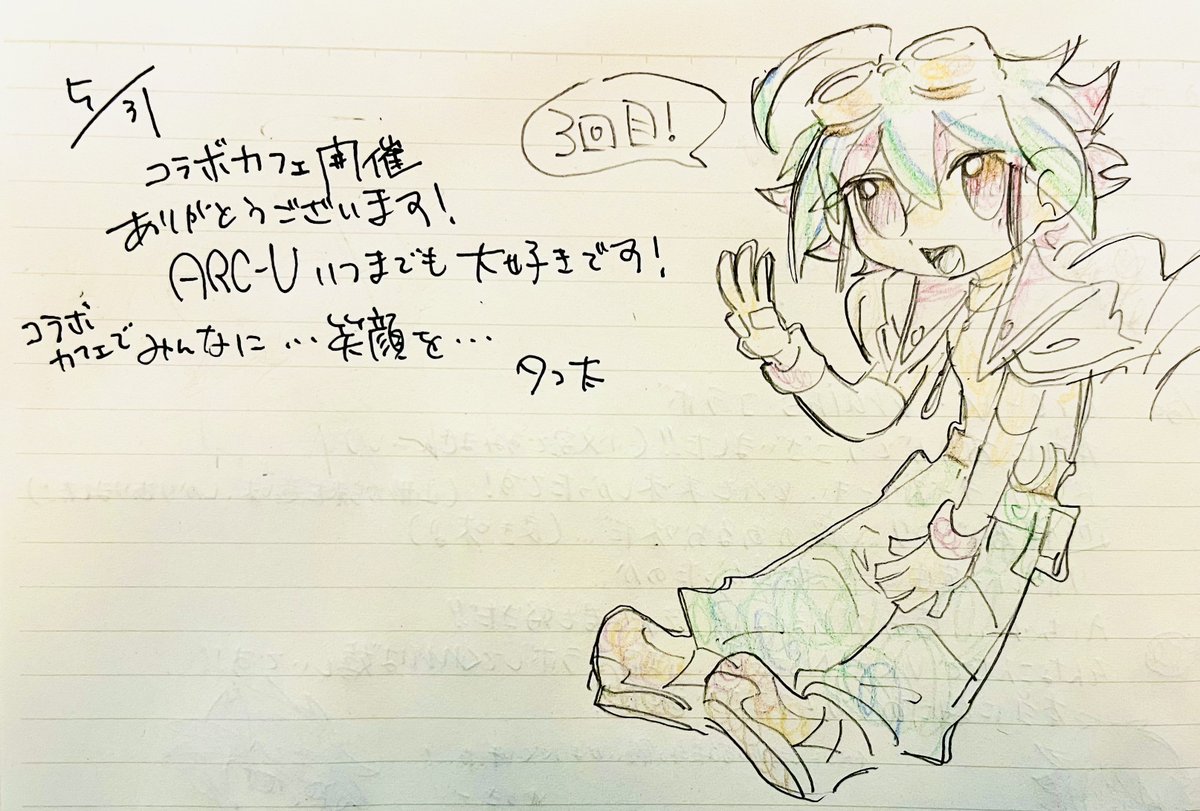 5/31
コラボカフェ開催
ありがとうございます!
ARC-Vいつまでも大好きです!
コラボ
カフェでみんなに…笑顔を…
3回目!